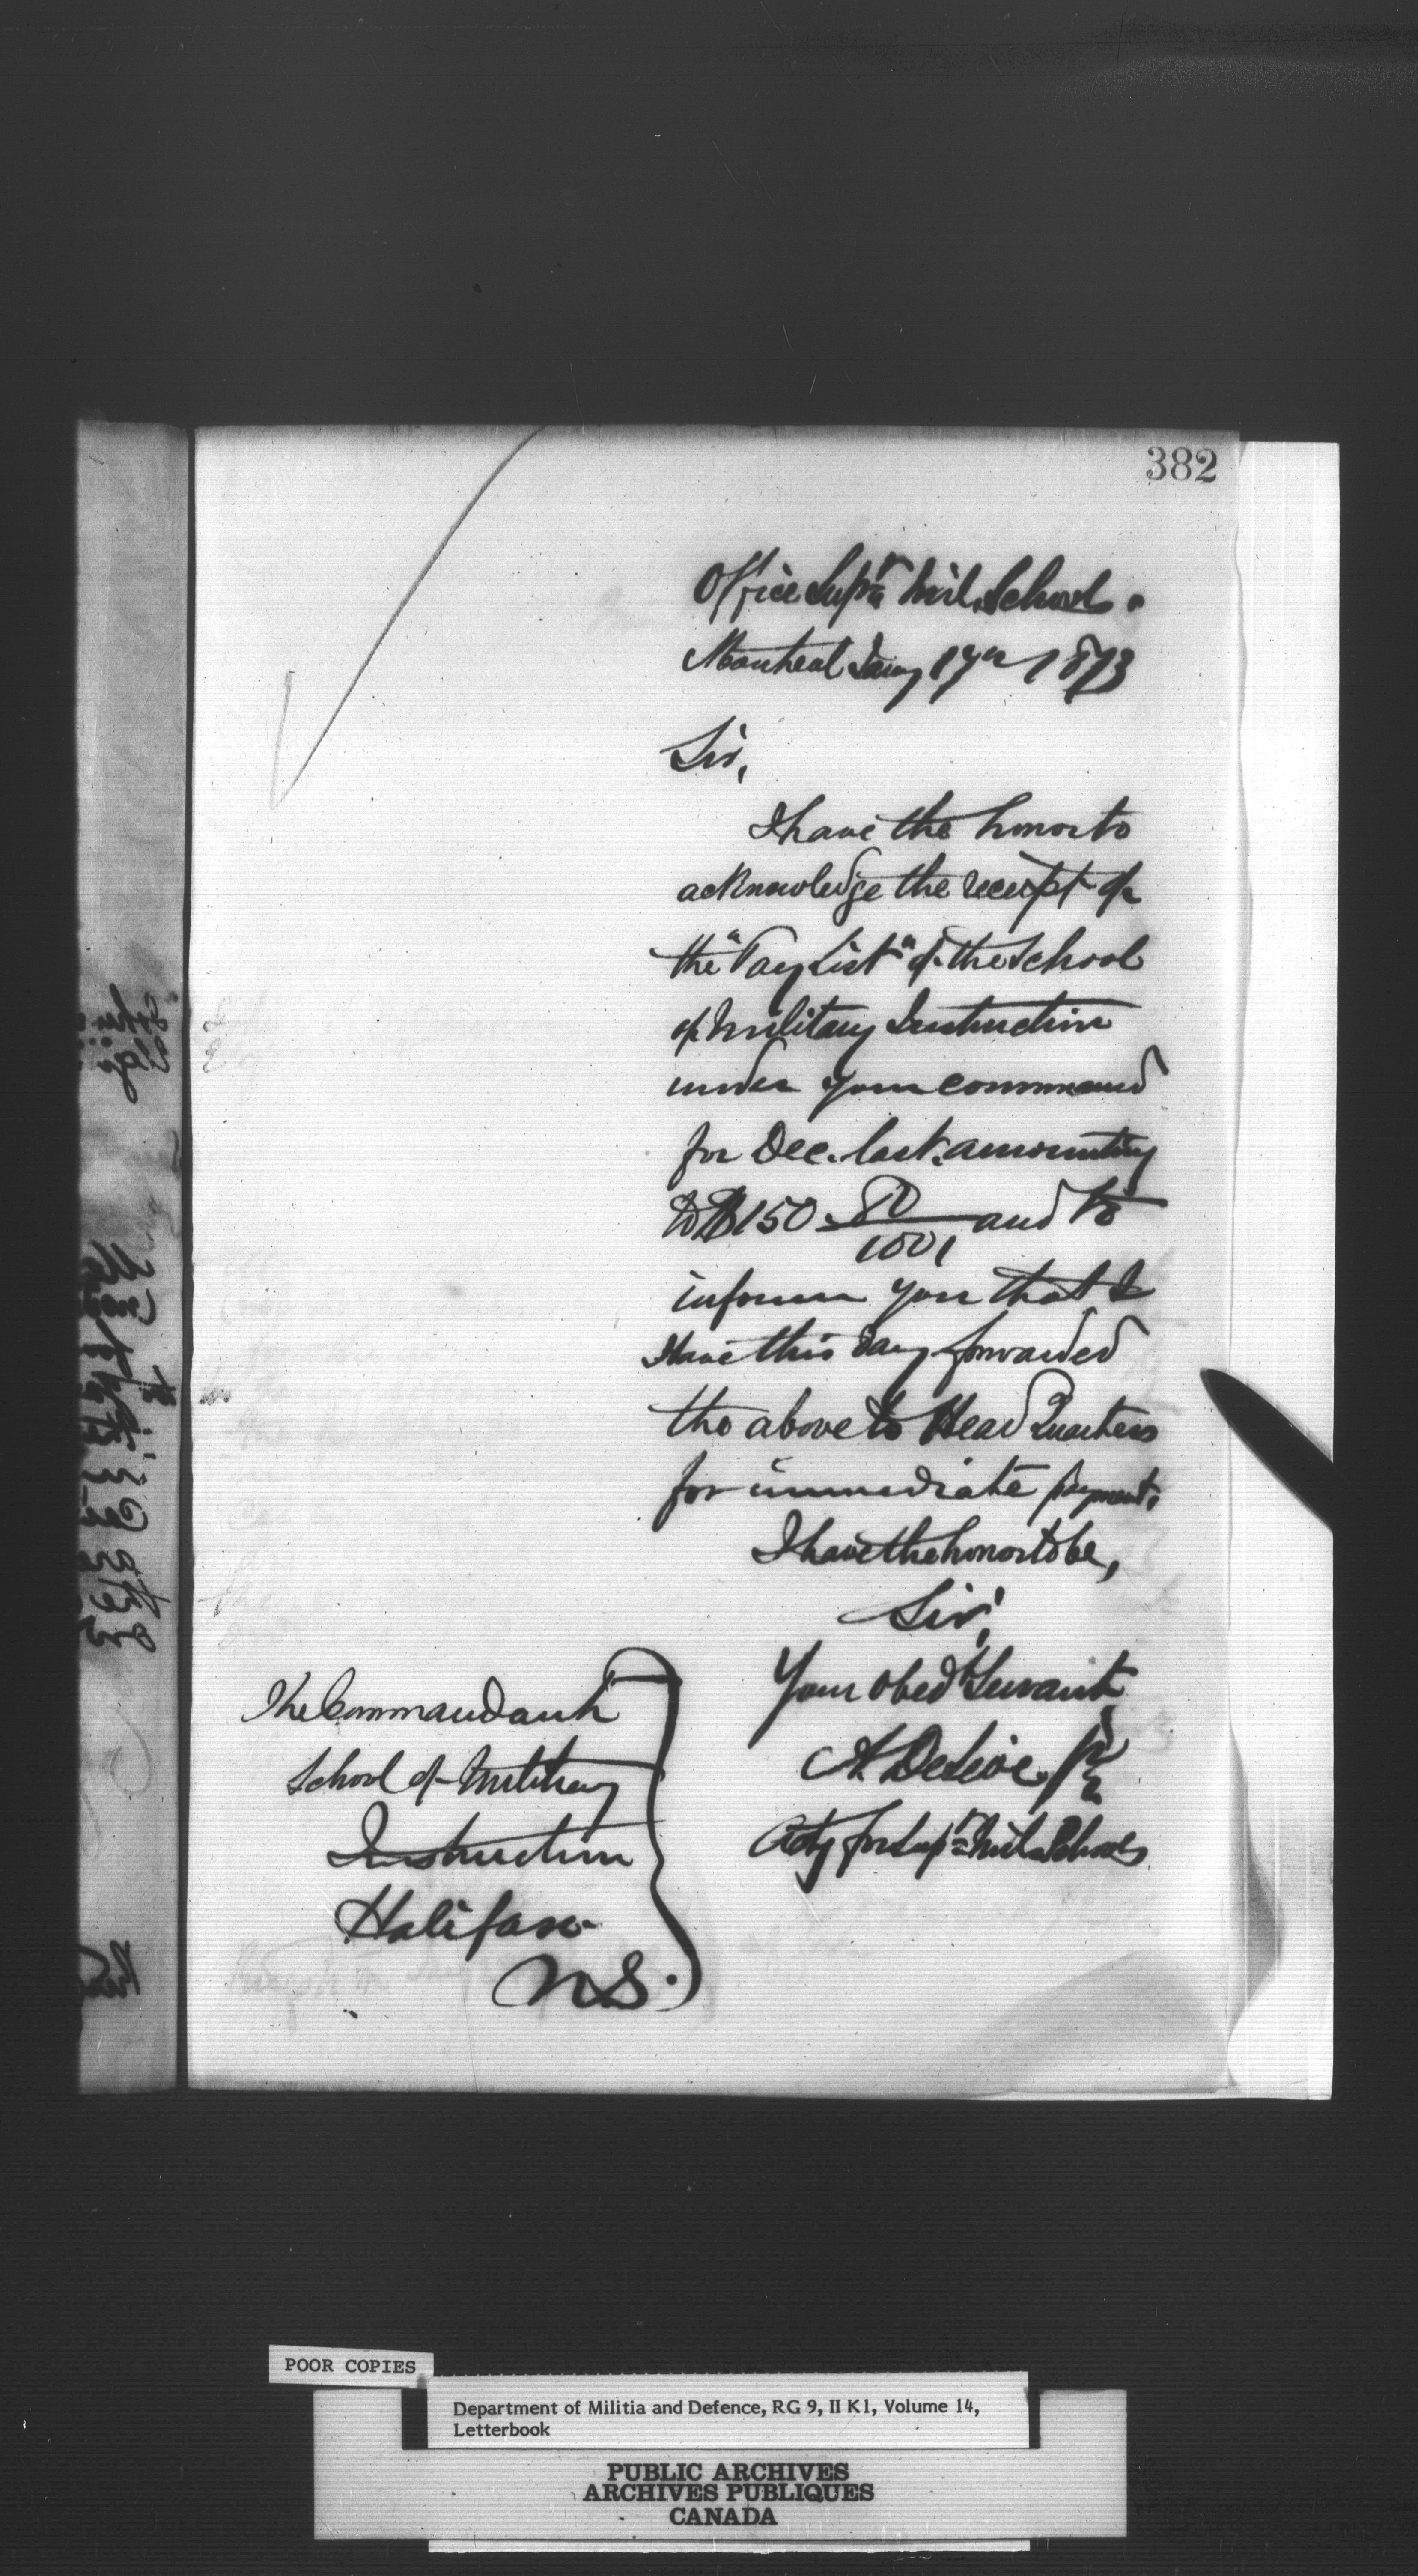 382
Office Supt. Mil. Schools.
Montreal Jany 17th 1873
Sir,
I have the honor to
acknowledge the receipt of
the "Pay List" of the School
of Military Instruction
under your command
for Dec. last. amounting
to $150 80/100, and to
inform you that I
Have this day forwarded
the above to Head Quarters
for immediate payment.
I have the honor to be,
Sir,
Your obedt Servant
A. DeLioe
Actg for Supt. Mil. Schools
The Commandant
School of Military
Instruction
Halifax
N.S.
POOR COPIES
Department of Militia and Defence, RG 9, II K1, Volume 14,
Letterbook
PUBLIC ARCHIVES
ARCHIVES PUBLIQUES
CANADA